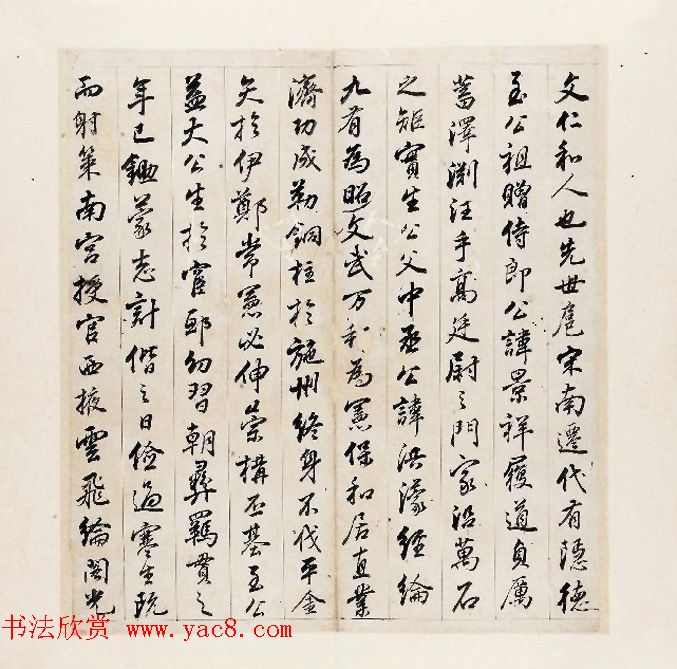 文仁和人也先世扈宋南遷代有隱德
至公祖贈侍郎公諱景祥履道貞厲
蓄澤渊汪乎高廷尉之門家沿萬石
之矩實生公父中丞公諱洪濛經綸
九有為昭文武万利為憲保和居直業
濟功成勒銅柱於施州終身不伐平金
矢於伊鄭常憲必伸崇構丕基至公
益大公生於宦邸幼習朝彝羈貫之
年已鋤蒙志計偕之日儉過寒生既
而射策南宫授官西掖雲飛綸閣光
书法欣赏 www.yac8.com